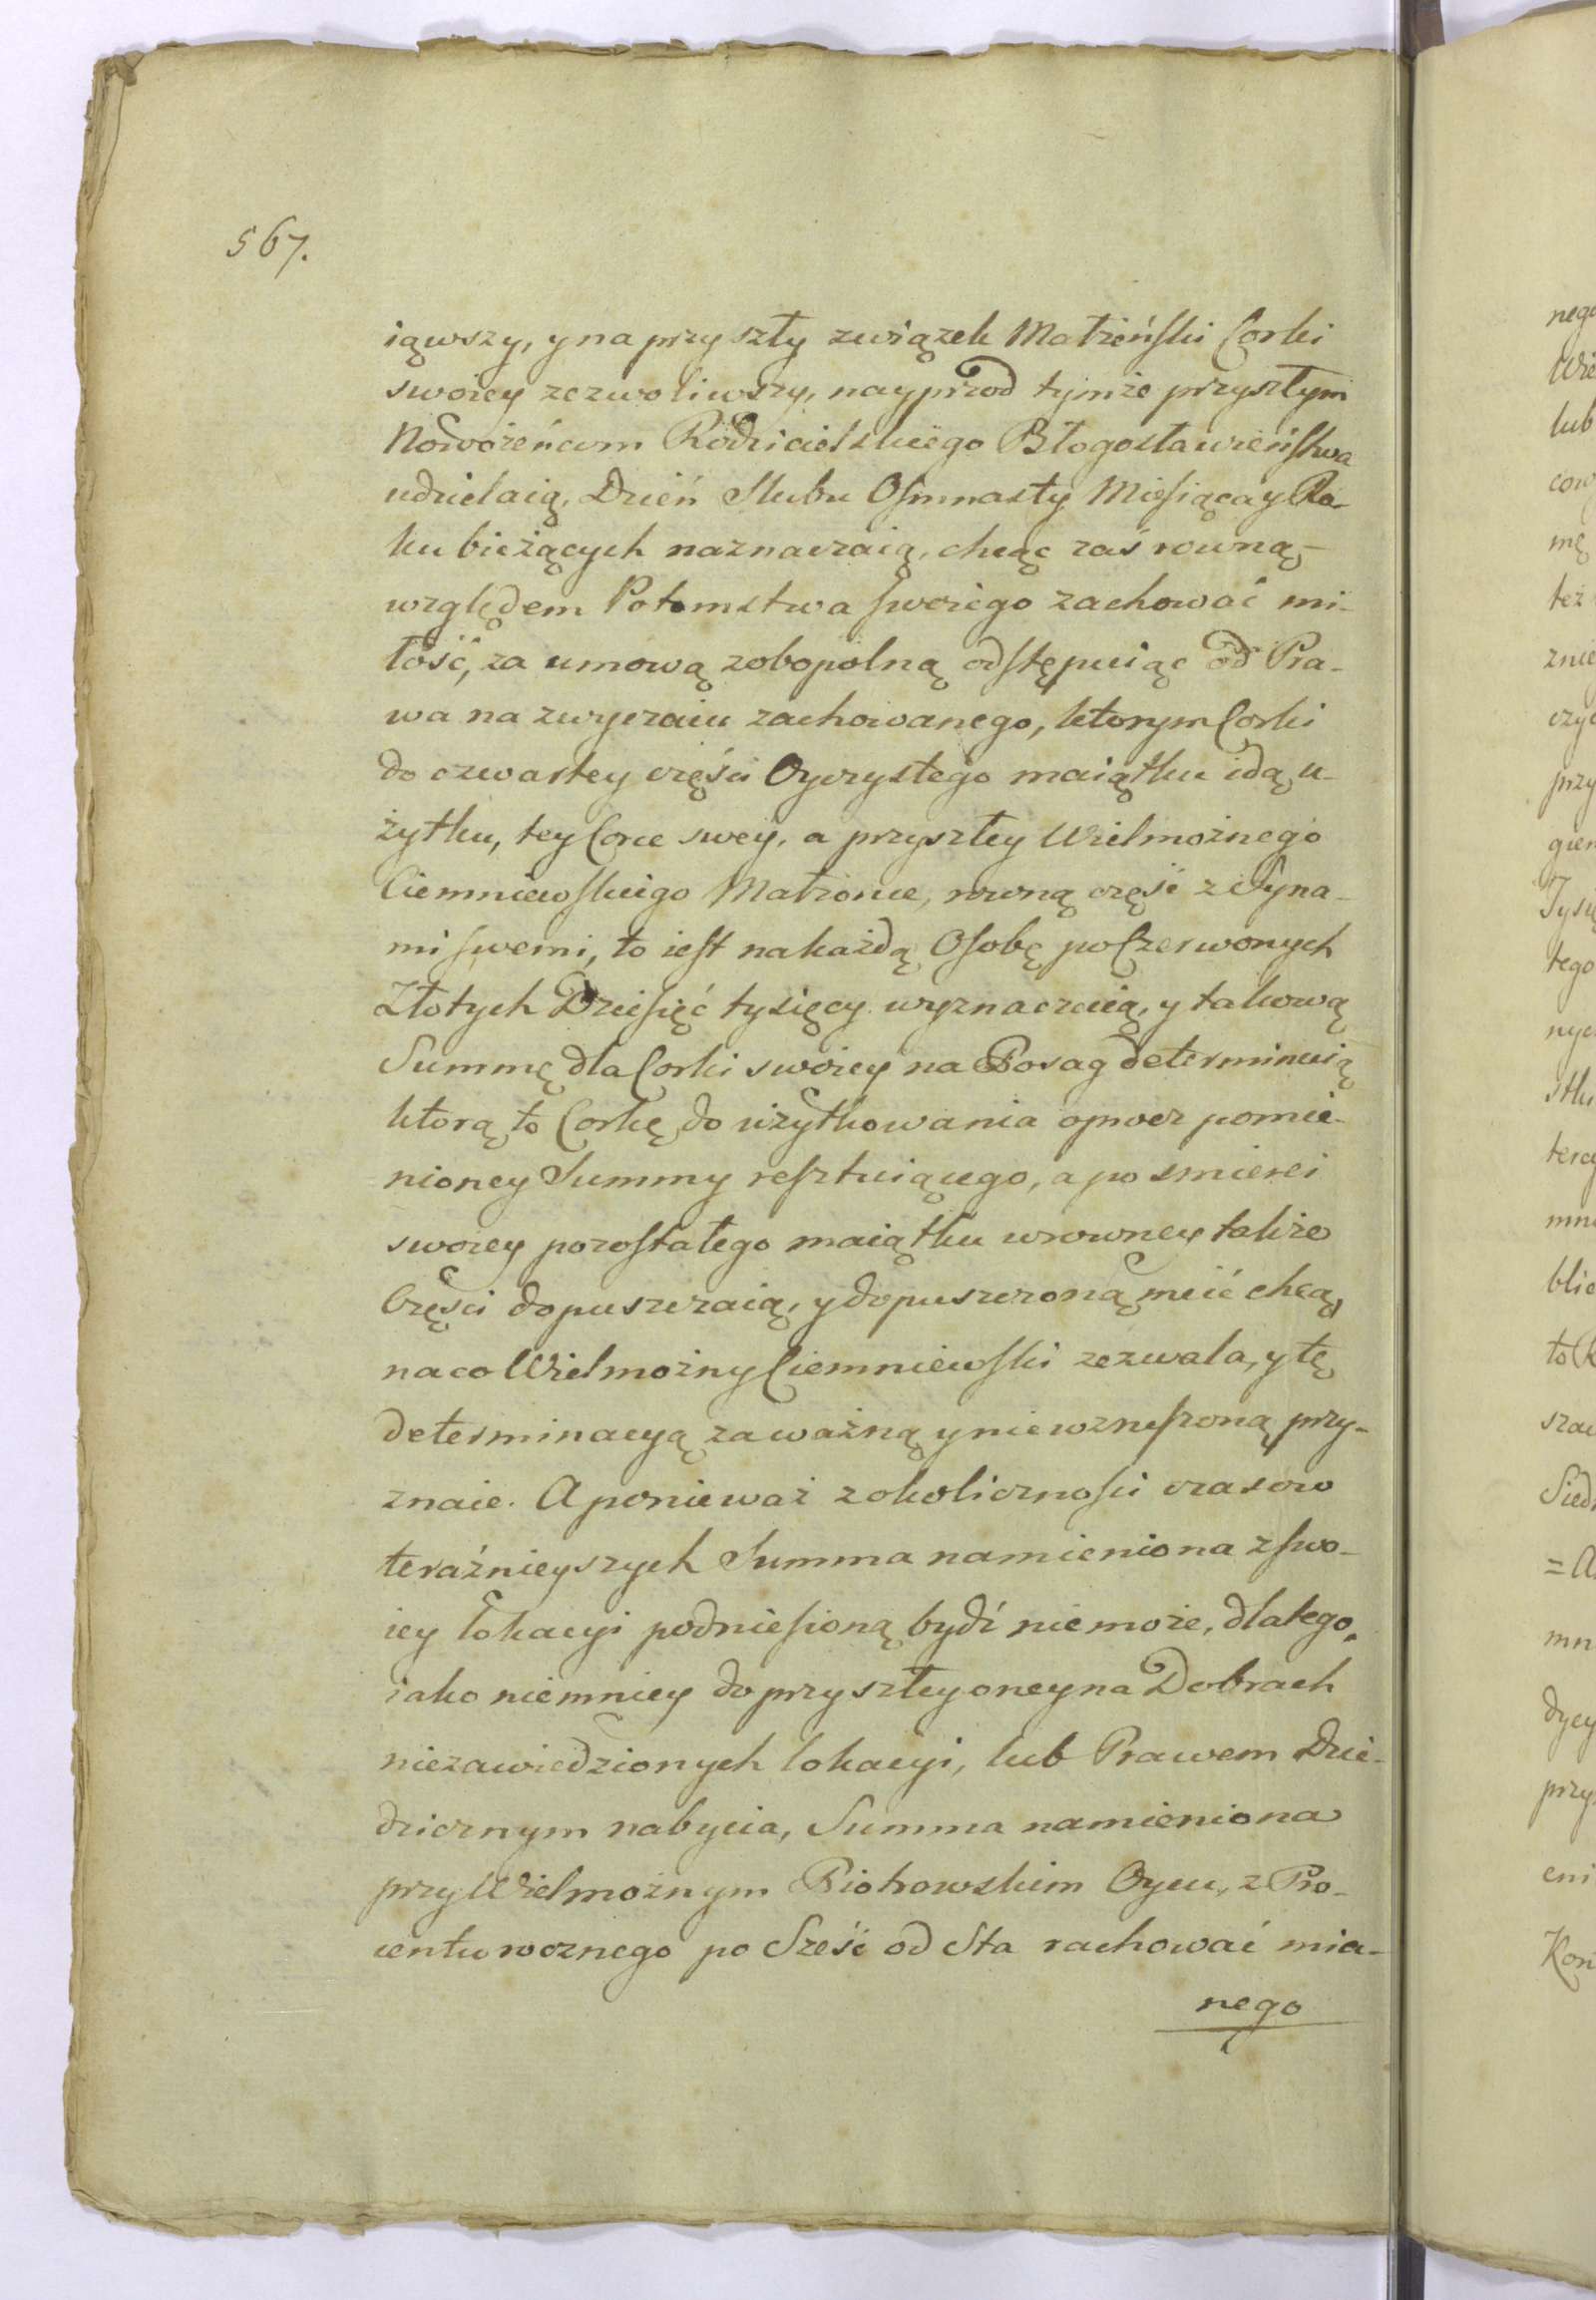 567.
iąwszy, y na przyszły związek Małżeński Corki
swoiey zezwoliwszy, nayprzod tymże przyszłym
Nowożeńcom Rodzicielskiego Błogosławieństwa
udzielaią, Dzień Slubu Osmnasty Miesiąca y Ro-
ku bieżących naznaczaią, chcąc zaś rowną
względem Potomstwa swoiego zachować mi-
łość, za umową zobopolną odstępuiąc od Pra-
wa na zwyczaiu zachowanego, ktorym Corki
do czwartey części Oyczystego maiątku idą u-
żytku, tey Corce swey, a przyszłey Wielmożnego
Ciemniewskiego Małżonce, rowną część z Syna-
mi swemi, to iest na każdą Osobę po Czerwonych
Złotych Dziesięć tysięcy wyznaczaią, y takową
Summę dla Corki swoiey na Posag determinuią
ktorą to Corkę do użytkowania oprocz pomie-
nioney Summy resztuiącego, a po smierci
swoiey pozostałego maiątku w rowney także
Części dopuszczaią, y dopuszczoną mieć chcą,
na co Wielmożny Ciemniewski zezwala, y tę
determinacyą za ważną y niewzruszoną przy-
znaie. A ponieważ z okoliczności czasow
teraźnieyszych Summa namieniona z swo-
iey lokacyi podniesioną bydź nie może, dlatego,
iako niemniey do przyszłey oney na Dobrach
niezawiedzionych lokacyi, lub Prawem Dzie-
dzicznym nabycia, Summa namieniona
przy Wielmożnym Piotrowskim Oycu, z Pro-
centu rocznego po Sześć od Sta rachować mia-
nego